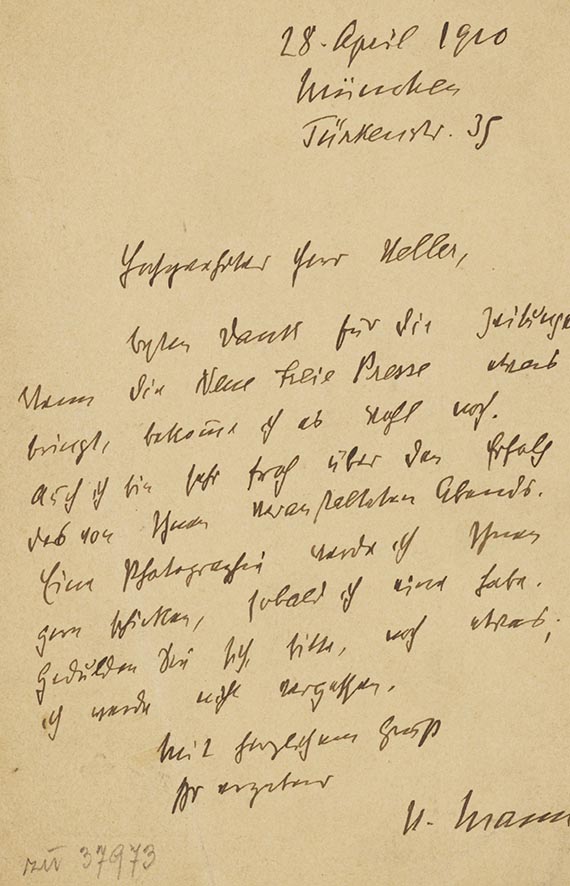 28. April 1910
München
Türkenstr. 35
Hochgeehrter Herr Heller,
besten Dank für die Zeitunge
Wenn die Neue Freie Presse etwas
bringt, bekomme ich es wohl noch.
Auch ich bin sehr froh über den Erfolg
des von Ihnen veranstalteten Abends.
Eine Photographie werde ich Ihnen
gern schicken, sobald ich eine habe.
Gedulden Sie sich, bitte, noch etwas;
ich werde nicht vergessen.
Mit herzlichem Gruß
Ihr ergebener
H. Mann
zu 37973